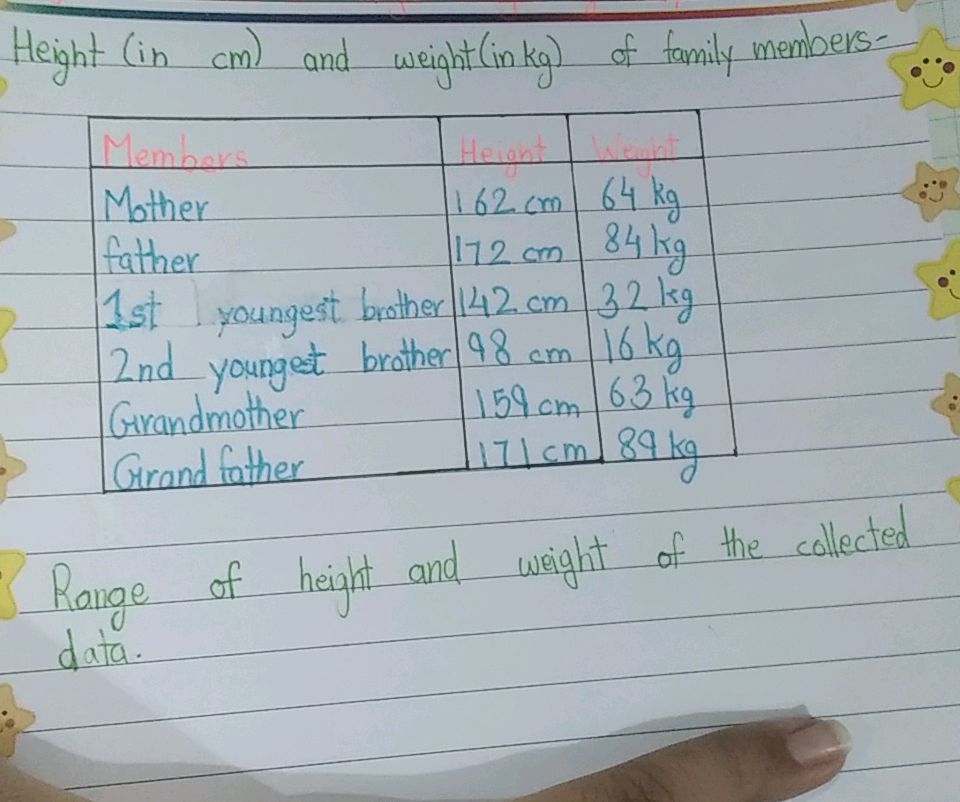 Height (in cm) and weight (in kg) of family members-
Members Height Weight
Mother 162 cm 64 kg
father 172 cm 84 kg
1st youngest brother 142 cm 32 kg
2nd youngest brother 98 cm 16 kg
Grandmother 159 cm 63 kg
Grand father 171 cm 89 kg
Range of height and weight of the collected
data.